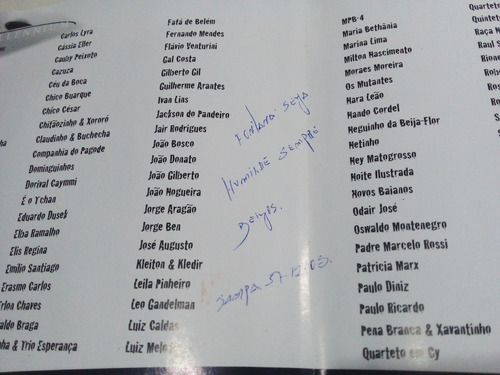 Carlos Lyra
Cássia Eller
Cauby Peixoto
Cazuza
Céu da Boca
Chico Buarque
Chico César
Chitãozinho & Xororó
Claudinho & Buchecha
Companhia do Pagode
Dominguinhos
Dorival Caymmi
É o Tchan
Eduardo Dusek
Elba Ramalho
Elis Regina
Emílio Santiago
Erasmo Carlos
Chaves
aldo Braga
ha & Trio Esperança
Fafá de Belém
Fernando Mendes
Flávio Venturini
Gal Costa
Gilberto Gil
Guilherme Arantes
Ivan Lins
Jackson do Pandeiro
Jair Rodrigues
João Bosco
João Donato
João Gilberto
João Nogueira
Jorge Aragão
Jorge Ben
José Augusto
Kleiton & Kledir
Leila Pinheiro
Leo Gandelman
Luiz Caldas
Luiz
Seja
Humilde sempre
Beijos.
MPB-4
Maria Bethânia
Marina Lima
Milton Nascimento
Moraes Moreira
Os Mutantes
Nara Leão
Nando Cordel
Neguinho da Beija-Flor
Netinho
Ney Matogrosso
Noite Ilustrada
Novos Baianos
Odair José
Oswaldo Montenegro
Padre Marcelo Rossi
Patricia Marx
Paulo Diniz
Paulo Ricardo
Pena Branca & Xavantinho
Quarteto em Cy
Quartet
Quint
Raça N
Raul S